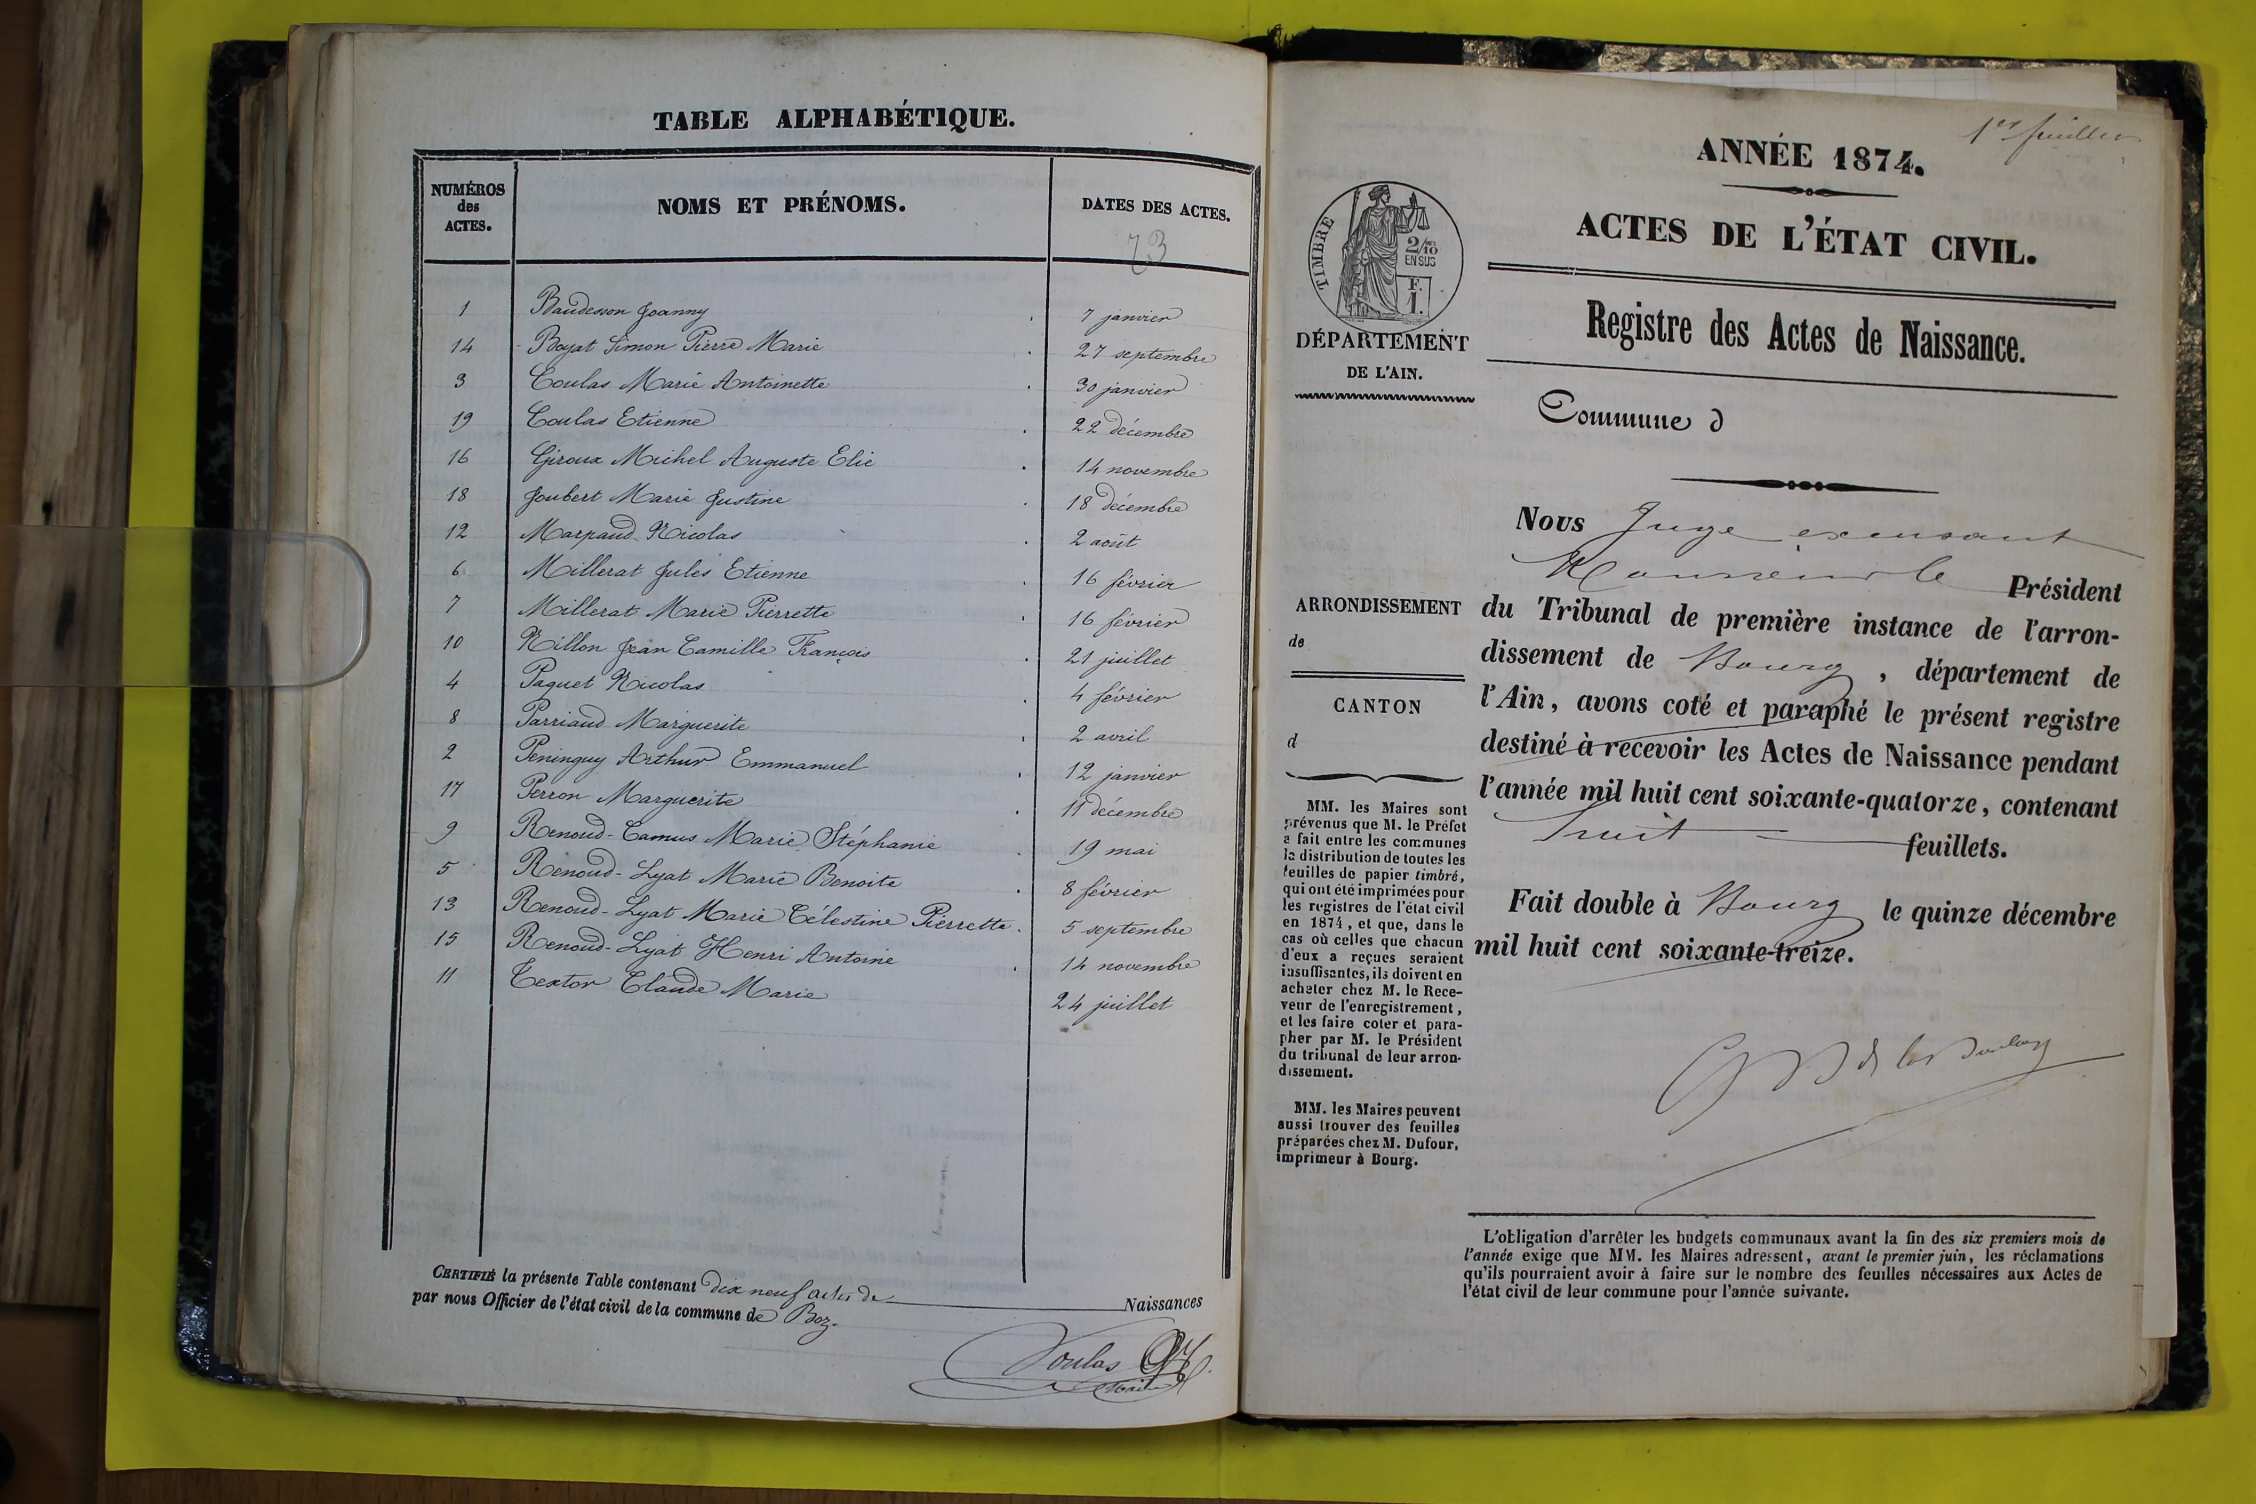 TABLE ALPHABÉTIQUE.
NUMÉROS des ACTES.
NOMS ET PRÉNOMS.
DATES DES ACTES.
73
1 Baudesson Joanny 7 janvier
14 Boyat Simon Pierre Marie 27 septembre
3 Coulas Marie Antoinette 30 janvier
19 Coulas Etienne 22 décembre
16 Giroux Michel Auguste Elie 14 novembre
18 Joubert Marie Justine 18 décembre
12 Marpaud Nicolas 2 août
6 Millerat Jules Etienne 16 février
7 Millerat Marie Pierrette 16 février
10 Nillon Jean Camille François 21 juillet
4 Paquet Nicolas 4 février
8 Parriaud Marguerite 2 avril
2 Peninguy Arthur Emmanuel 12 janvier
17 Perron Marguerite 11 décembre
9 Renoud-Camus Marie Stéphanie 19 mai
5 Renoud-Lyat Marie Benoite 8 février
13 Renoud-Lyat Marie Célestine Pierrette 5 septembre
15 Renoud-Lyat Henri Antoine 14 novembre
11 Textor Claude Marie 24 juillet
CERTIFIÉ la présente Table contenant dix neuf actes de Naissances
par nous Officier de l'état civil de la commune de Boz.
Coulas
1er feuillet
ANNÉE 1874.
ACTES DE L'ÉTAT CIVIL.
Registre des Actes de Naissance.
Commune d
TIMBRE
2/10
EN SUS
F.
1.
DÉPARTEMENT
DE L'AIN.
ARRONDISSEMENT
de
CANTON
d
MM. les Maires sont
prévenus que M. le Préfet
a fait entre les communes
la distribution de toutes les
feuilles de papier timbré,
qui ont été imprimées pour
les registres de l'état civil
en 1874, et que, dans le
cas où celles que chacun
d'eux a reçues seraient
insuffisantes, ils doivent en
acheter chez M. le Rece-
veur de l'enregistrement,
et les faire coter et para-
pher par M. le Président
du tribunal de leur arron-
dissement.
MM. les Maires peuvent
aussi trouver des feuilles
préparées chez M. Dufour,
imprimeur à Bourg.
Nous Juge excusant
Monsieur le Président
du Tribunal de première instance de l'arron-
dissement de Bourg, département de
l'Ain, avons coté et paraphé le présent registre
destiné à recevoir les Actes de Naissance pendant
l'année mil huit cent soixante-quatorze, contenant
huit feuillets.
Fait double à Bourg le quinze décembre
mil huit cent soixante-treize.
L'obligation d'arrêter les budgets communaux avant la fin des six premiers mois de
l'année exige que MM. les Maires adressent, avant le premier juin, les réclamations
qu'ils pourraient avoir à faire sur le nombre des feuilles nécessaires aux Actes de
l'état civil de leur commune pour l'année suivante.